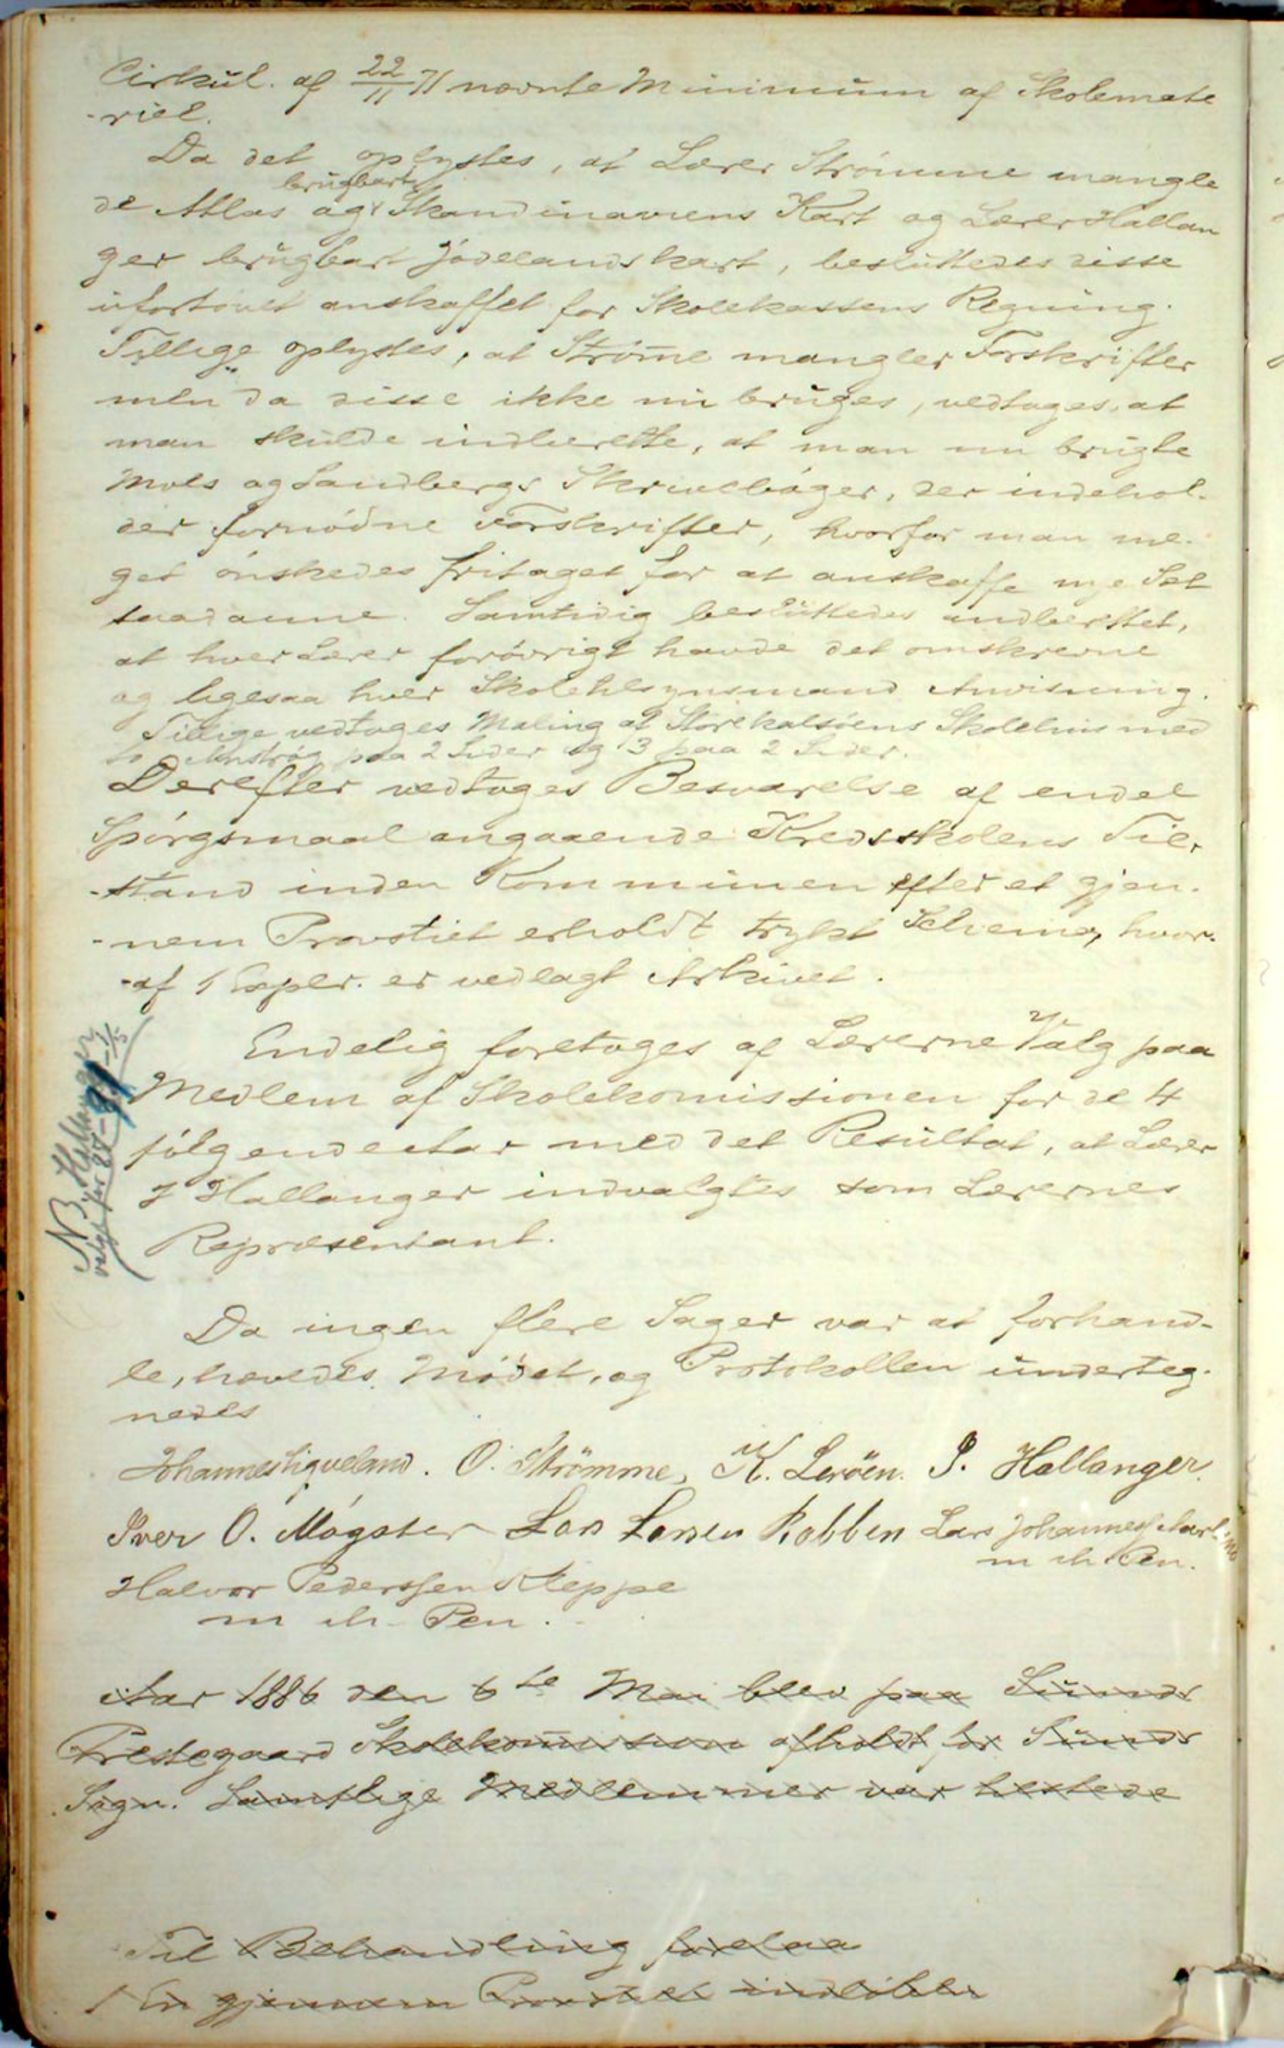 Cirkul. af 22/11 71 nævnte Minimum af Skolemate
-riel.
Da det oplystes, at Lærer Strömme mangle
brugbart
de Atlas og Skandinaviens Kart og Lærer Hallan
ger brugbart Jödelandskart, besluttedes disse
ufortövet anskaffet for Skolekassens Regning.
Tillige oplystes, at Ström̅e mangler Forskrifter
men da disse ikke nu bruges, vedtoges, at
man skulde indberette, at man nu brugte
Mols og Sandbergs Skrivebøger, der indehol-
der fornödne Forskrifter, hvorfor man me-
get önskedes fritaget for at anskaffe nye Sæt
saadanne. Samtidig besluttedes indberettet,
at hver Lærer forövrigt havde det omskrevne
og ligesaa hver Skoletilsynsmand Anvisning.
Tillige vedtoges Maling af Storekalsöens Skolehus med
to Anströg paa 2 Sider og 3 paa 2 Sider.
Derefter vedtoges Besvarelse af endel
Spörgsmaal angaaende Kredsskolens Til-
-stand inden Kommunen efter et gjen-
-nem Provstiet erholdt trykt Schema, hvor-
-af 1 Explr. er vedlagt Arkivet.
Endelig foretoges af Lærerne Valg paa
Medlem af Skolekomissionen for de 4
fölgende Aar med det Resultat, at Lærer
J Hallanger indvalgtes som Lærernes
Repræsentant.
NB. Hallanger
valgt for
Da ingen flere Sager var at forhand-
le, hævedes Mödet, og Protokollen underteg-
nedes
Johannes Ligveland. O. Strömme, K. Leröen. J. Hallanger.
Iver O. Mögster Lars Larsen Rabben Lars Johannes
m. ih. Pen.
Halvor Pederssen Kleppe
m ih. Pen.
Aar 1886 den 6te Mai blev paa Sunds
Prestegaard Skolekom̅ission afholdt for Sunds
Sogn. Samtlige Medlemmer var tilstede
Til Behandling forelaa
1 En gjennem Provstiet indlöben